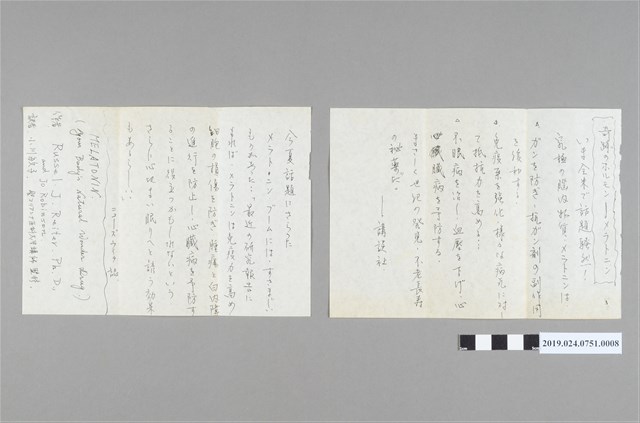 奇跡のホルモン—メラトニン
いま全米で話題騒然!
究極の脳内物質・メラトニンは
ガンを防ぎ・抗ガン剤の副作用
を緩和する
免疫系を強化 様々な病気に対し
て抵抗力を高め…
不眠病を治し・血圧を下げ・心
心臓病を予防する。
まさしく世紀の発見・不老長寿
の秘薬だ。
——講談社
今夏話題にさらった
メラトニン・ブームには・すさまじい
ものがあった…最近の研究報告に
よれば・メラトニンは免疫力を高め
細胞の損傷を防ぎ・腫瘍と白内障
の進行を防止し・心臓病を予防す
ることに役立つかもしれないという
さらに心地よい眠りへと誘う効果
もあるらしい
ニューズウィーク誌
MELATONIN
(your Body's Natural Wonder Drug)
Russel J. Reiter Ph. D.
and Jo Robinson
2019.024.0751.0008